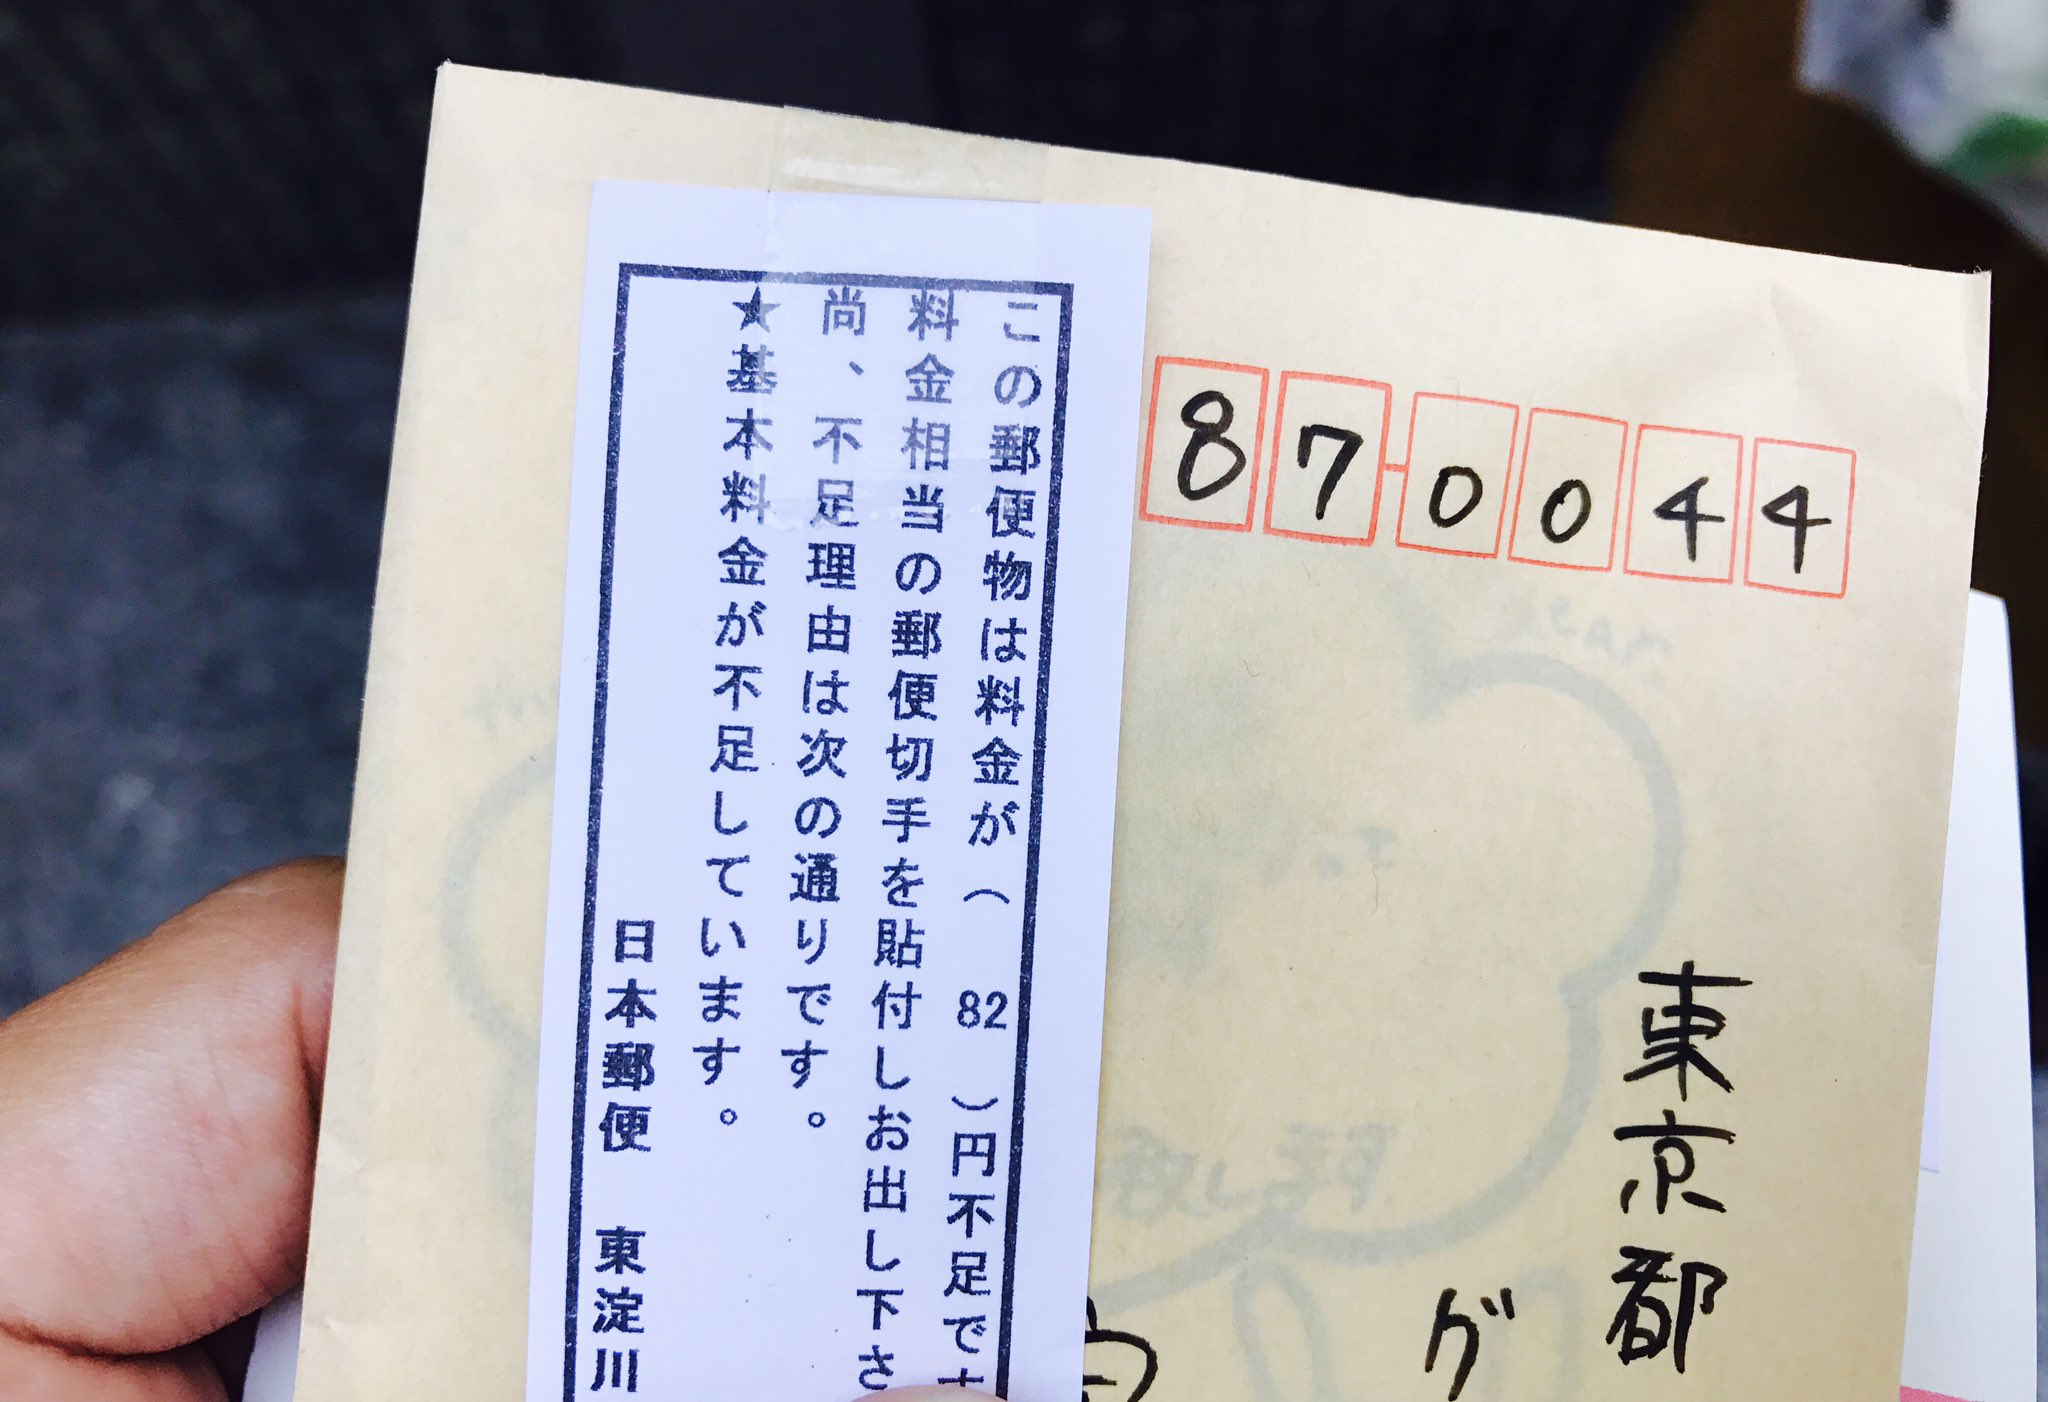 この郵便物は料金が（ 82 ）円不足で
料金相当の郵便切手を貼付しお出し下さ
尚、不足理由は次の通りです。
★基本料金が不足しています。
日本郵便 東淀川
87-0044
東京都
グ